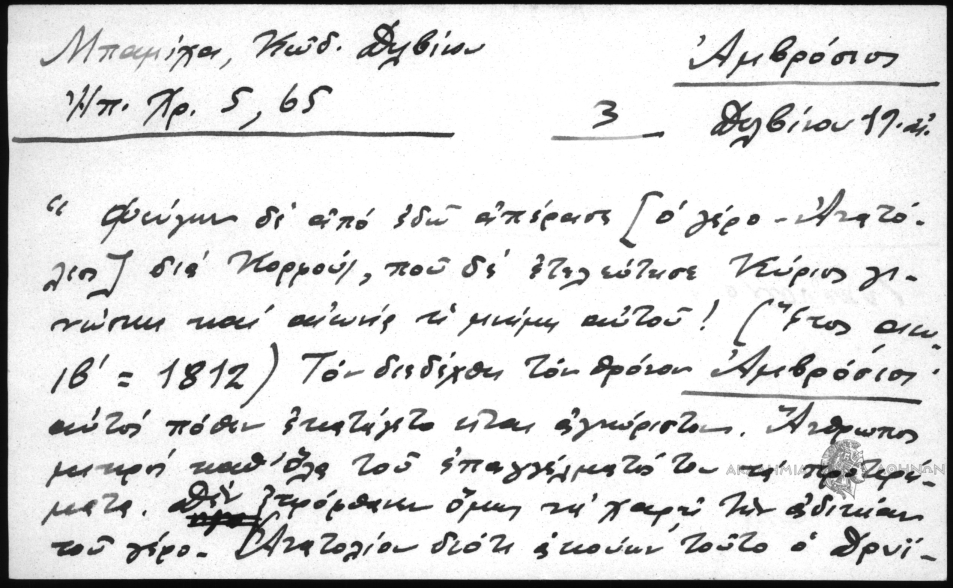 Μπαμίχα, Κώδ. Δελβίνου
Ἠπ. Χρ. 5, 65
Ἀμβρόσιος
3
Δελβίνου 19. αἰ.
“ Φεύγων δέ ἀπό ἐδῶ ἀπέρασε [ὁ γέρο - Ἀνατό-
λιος] διά Κορφούς, ποῦ δέ ἐτελεύτησε Κύριος γι-
νώσκει καί αἰωνία ἡ μνήμη αὐτοῦ! (Ἔτος αω-
ιβ´ = 1812) Τόν διεδέχθη τόν θρόνον Ἀμβρόσιος·
αὐτός πόθεν ἐκατάγετο εἶναι ἀγνώριστον. Ἄνθρωπος
μικρός καθ' ὅλα τοῦ ἐπαγγέλματός του τά προτερή-
ματα. Δέν ἐπρόφθασεν ὅμως νά χαρῇ τήν ἀδικίαν
τοῦ γέρο - Ἀνατολίου διότι ἀκούων τοῦτο ὁ Δρυϊ-
ΑΚΑΔΗΜΙΑ ΑΘΗΝΩΝ